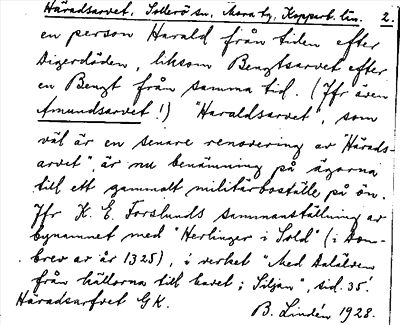 Häradsarvet, Sollerö sn, Mora tg, Kopparb. län. 2.
en person Harald från tiden efter
digerdöden, liksom Bengtsarvet efter
en Bengt från samma tid. (Jfr även
Amundsarvet!) "Haraldsarvet", som
väl är en senare renovering av "Härads-
arvet", är nu benämning på ägorna
till ett gammalt militärboställe på ön.
Jfr K. E. Forslunds sammanställning av
bynamnet med "Herlinger i Sold" (i dom-
brev av år 1325), i verket "Med Dalälven
från källorna till havet; Siljan", sid. 35.
Häradsarfvet GK.
B. Lindén 1928.